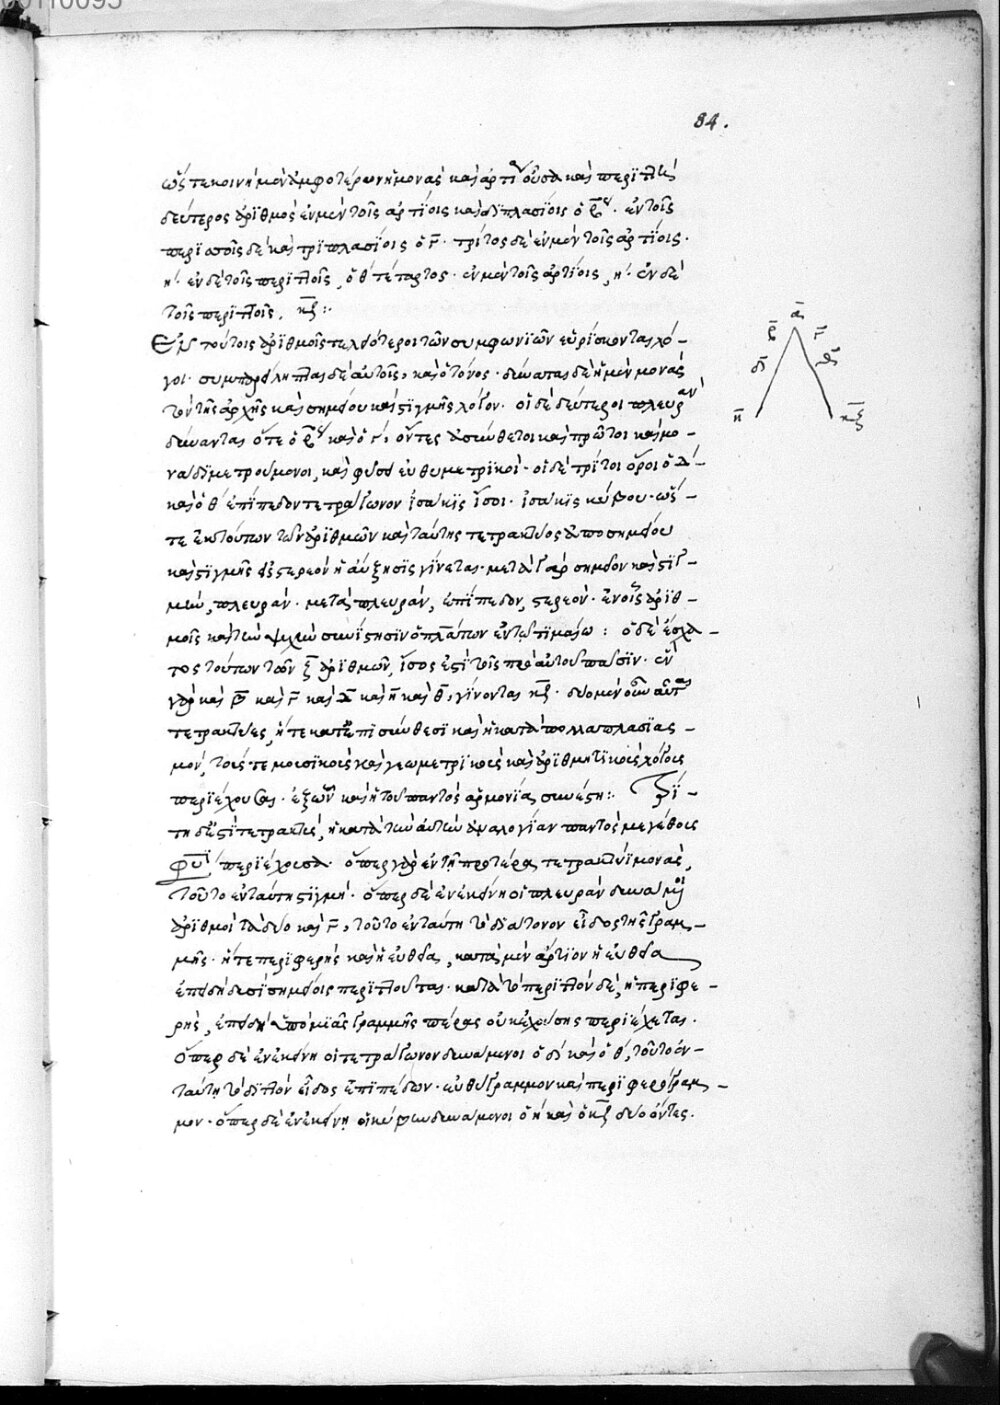 84.
ὥστε κοινὴ μὲν ἀμφοτέρων ἡ μονὰς καὶ ἀρτία οὖσα καὶ περιττὴ
δεύτερος ἀριθμὸς ἐν μὲν τοῖς ἀρτίοις καὶ διπλασίοις ὁ β̅. ἐν τοῖς
περιττοῖς δὲ καὶ τριπλασίοις ὁ γ̅. τρίτος δὲ ἐν μὲν τοῖς ἀρτίοις.
ἐν δὲ τοῖς περιττοῖς, ὁ θ τέταρτος. ἐν μὲν τοῖς ἀρτίοις, η. ἐν δὲ
τοῖς περιττοῖς, κ̅ζ̅:
Ἐν τούτοις ἀριθμοῖς τελειότεροι τῶν συμφωνιῶν εὑρίσκονται λό-
γοι. συμπαρείληπται δὲ αὐτοῖς, καὶ ὁ τόνος. δύναται δὲ ἡ μὲν μονὰς
τὸν τῆς ἀρχῆς καὶ σημείου καὶ στιγμῆς λόγον. οἱ δὲ δεύτεροι πλευρὰν
δύνανται ὅτε ὁ β̅ καὶ ὁ γ, ὄντες ἀσύνθετοι καὶ πρῶτοι καὶ μο-
νάδι μετρούμενοι, καὶ φύσει εὐθυμετρικοί. οἱ δὲ τρίτοι ὅροι ὁ δ̅
καὶ ὁ θ ἐπίπεδον τετράγωνον ἰσάκις ἴσοι. ἰσάκις κύβου. ὥσ-
τε ἐκ τούτων τῶν ἀριθμῶν καὶ ταύτης τετρακτύος ἀπὸ σημείου
καὶ στιγμῆς εἰς στερεὸν ἡ αὔξησις γίνεται. μετὰ γὰρ σημεῖον καὶ στιγ-
μὴν, πλευράν. μετὰ πλευράν, ἐπίπεδον, στερεόν. ἐν οἷς ἀριθ-
μοῖς καὶ τὴν ψυχὴν συνίστησιν ὁ πλάτων ἐν τῷ τιμαίῳ: ὁ δὲ ἔσχα-
τος τούτων τῶν ζ̅ ἀριθμῶν, ἴσος ἐστὶ τοῖς πρὸ αὐτοῦ πᾶσιν. ἓν
γὰρ καὶ β̅ καὶ γ̅ καὶ δ̅ καὶ η̅ καὶ θ̅, γίνονται κ̅ζ̅. δύο μὲν οὖν αὗται
τετρακτύες, ἥ τε κατ' ἐπισύνθεσι καὶ ἡ κατὰ πολλαπλασιασ-
μὸν, τούς τε μουσικοὺς καὶ γεωμετρικοὺς καὶ ἀριθμητικοὺς λόγους
περιέχουσαι. ἐξ ὧν καὶ ἡ τοῦ παντὸς ἁρμονία συνέστη: Τρί-
τη δέ ἐστι τετρακτὺς, ἡ κατὰ τὴν αὐτὴν ἀναλογίαν παντὸς μεγέθους
φύσιν περιέχουσα. ὅπερ γὰρ ἐν τῇ προτέρᾳ τετρακτύϊ μονάς,
τοῦτο ἐν ταύτῃ στιγμή. ὅπερ δὲ ἐν ἐκείνῃ οἱ πλευρὰν δυνάμενοι
ἀριθμοὶ τὰ δύο καὶ γ̅, τοῦτο ἐν ταύτῃ τὸ διάτονον εἶδος τῆς γραμ-
μῆς. ἥτε περιφερὴς καὶ ἡ εὐθεῖα, κατὰ μὲν ἄρτιον ἡ εὐθεῖα
ἐπειδὴ δυσὶ σημείοις περιττοῦται. κατὰ τὸ περιττὸν δὲ, ἡ περιφε-
ρής, ἐπειδὴ ἀπὸ μιᾶς γραμμῆς πέρας οὐκ ἐχούσης περιέχεται.
Ὅπερ δὲ ἐν ἐκείνῃ οἱ τετράγωνον δυνάμενοι ὁ δ καὶ ὁ θ, τοῦτο ἐν
ταύτῃ τὸ διττὸν εἶδος ἐπιπέδων. εὐθύγραμμον καὶ περιφερόγραμ-
μον. ὅπερ δὲ ἐν ἐκείνῃ οἱ κύβων δυνάμενοι ὁ η καὶ ὁ κ̅ζ̅ δύο ὄντες.
α̅
β̅ γ̅
δ̅ θ̅
η̅ κ̅ζ̅